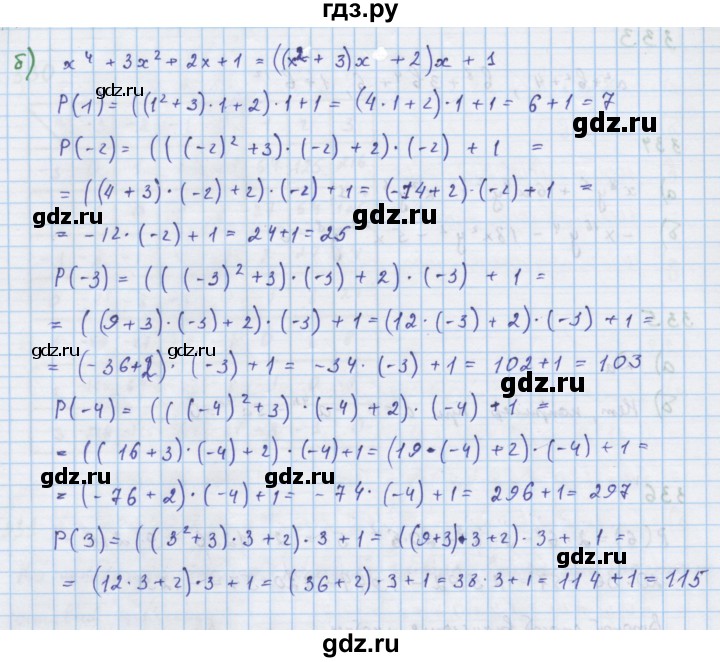 гдз.ру
б) x⁴ + 3x² + 2x + 1 = ((x² + 3)x + 2)x + 1
P(1) = ((1² + 3)·1 + 2)·1 + 1 = (4·1 + 2)·1 + 1 = 6 + 1 = 7
gdz.ru gdz.ru
P(-2) = (((-2)² + 3)·(-2) + 2)·(-2) + 1 =
= ((4 + 3)·(-2) + 2)·(-2) + 1 = (-14 + 2)·(-2) + 1 =
gdz.ru gdz.ru
= -12·(-2) + 1 = 24 + 1 = 25
P(-3) = (((-3)² + 3)·(-3) + 2)·(-3) + 1 =
= ((9 + 3)·(-3) + 2)·(-3) + 1 = (12·(-3) + 2)·(-3) + 1 =
gdz.ru gdz.ru
= (-36 + 2)·(-3) + 1 = -34·(-3) + 1 = 102 + 1 = 103
gdz.ru
P(-4) = (((-4)² + 3)·(-4) + 2)·(-4) + 1 =
gdz.ru
= ((16 + 3)·(-4) + 2)·(-4) + 1 = (19·(-4) + 2)·(-4) + 1 =
gdz.ru gdz.ru
= (-76 + 2)·(-4) + 1 = -74·(-4) + 1 = 296 + 1 = 297
P(3) = ((3² + 3)·3 + 2)·3 + 1 = ((9+3)·3 + 2)·3 + 1 =
gdz.ru
= (12·3 + 2)·3 + 1 = (36 + 2)·3 + 1 = 38·3 + 1 = 114 + 1 = 115
gdz.ru